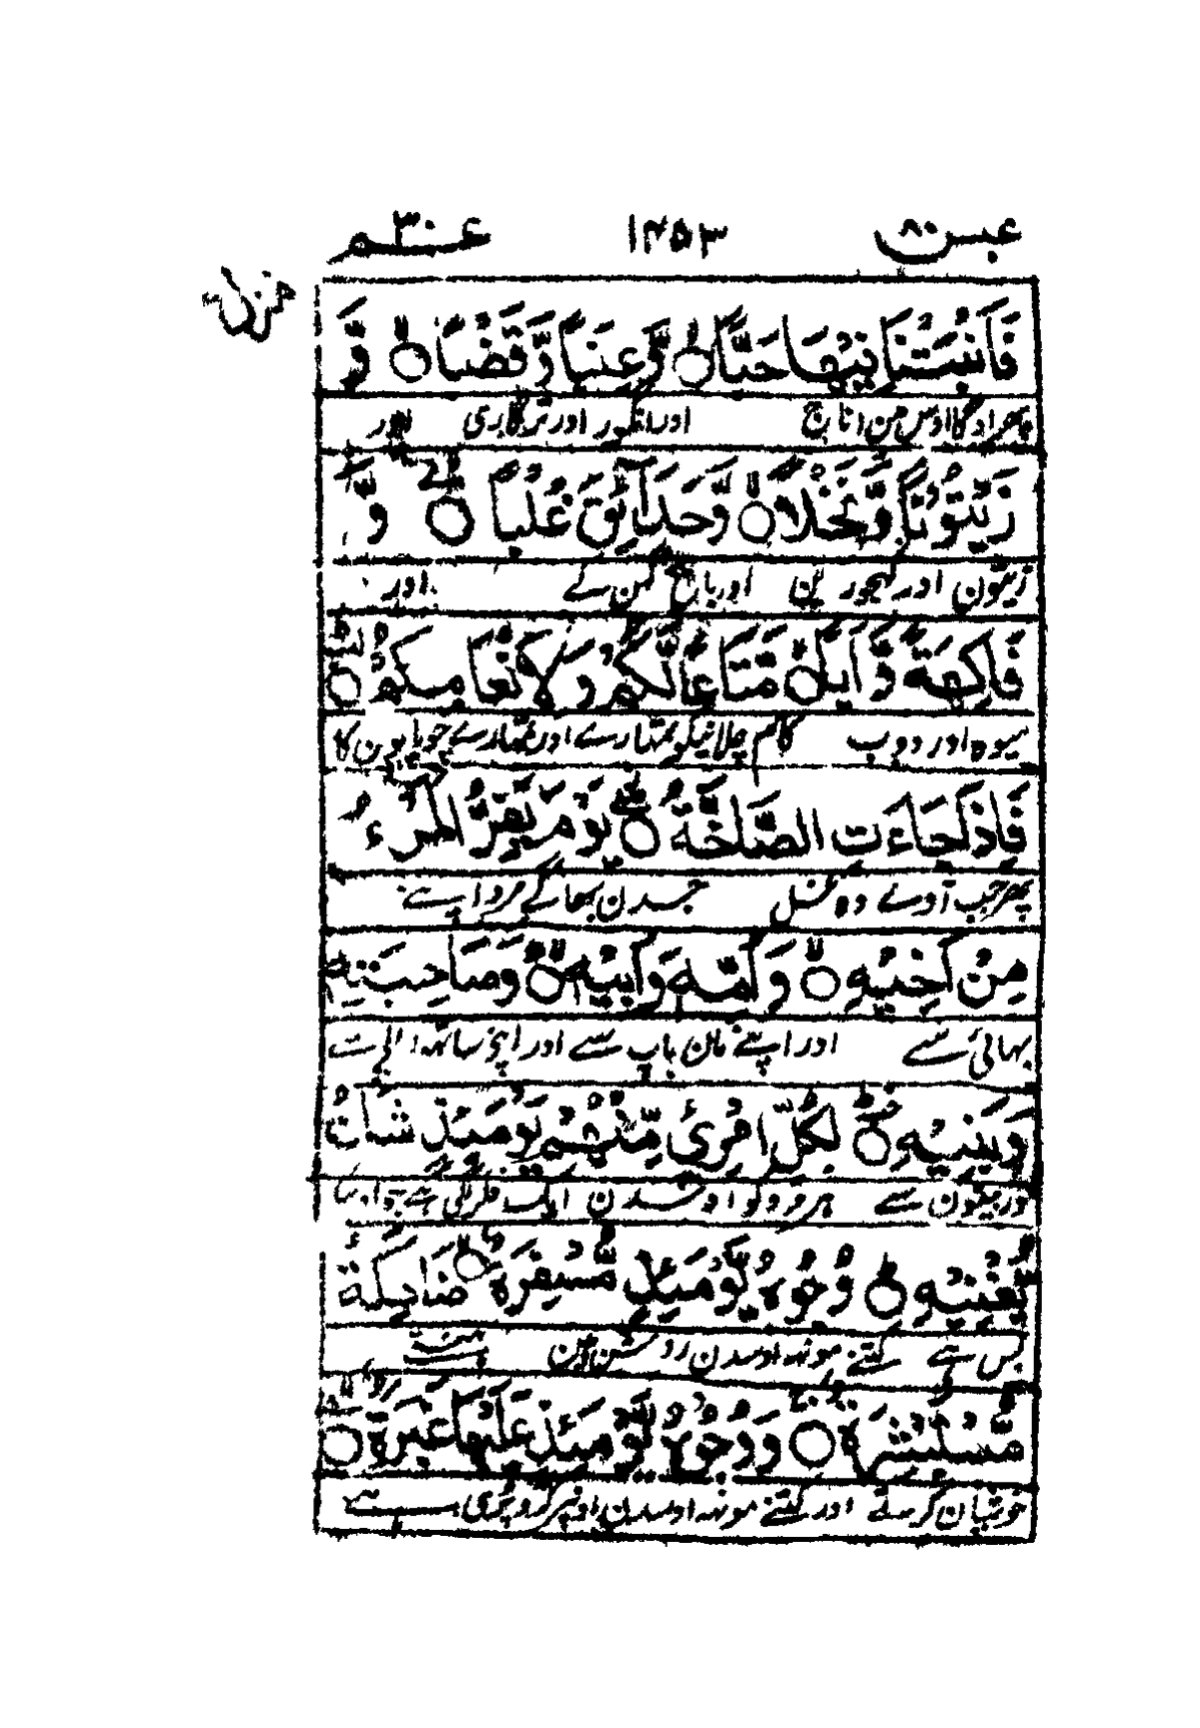 عبس ٨٠ ١٢٥٣ عم ٣٠
منزل
فَاَنْۢبَتْنَا فِيْهَا حَبًّا ۙ وَّعِنَبًا وَّقَضْبًا ۙ وَّ
پھر اوگایا اوس مین اناج اور انگور اور ترکاری اور
زَيْتُوْنًا وَّنَخْلًا ۙ وَّحَدَآئِقَ غُلْبًا ۙ وَّ
زیتون اور کھجورین اور باغ گھن کے اور
فَاكِهَةً وَّاَبًّا ۙ مَّتَاعًا لَّكُمْ وَلِاَنْعَامِكُمْ ؕ
میوہ اور دوب کام چلانیکو تمہارے اور تمہارے چوپایون کا
فَاِذَا جَآءَتِ الصَّآخَّةُ ۚ يَوْمَ يَفِرُّ الْمَرْءُ
پھر جب آوے وہ غل جسدن بھاگے مرد اپنے
مِنْ اَخِيْهِ ۙ وَاُمِّهٖ وَاَبِيْهِ ۙ وَصَاحِبَتِهٖ
بھائی سے اور اپنے مان باپ سے اور اپنی ساتھ
وَبَنِيْهِ ؕ لِكُلِّ امْرِئٍ مِّنْهُمْ يَوْمَئِذٍ شَاْنٌ
اور بیٹون سے ہر مرد کو اوسدن ایک فکر لگی ہے جو اوسکو
يُّغْنِيْهِ ؕ وُجُوْهٌ يَّوْمَئِذٍ مُّسْفِرَةٌ ۙ ضَاحِكَةٌ
بس ہے کتنے مونہہ اوسدن روشن ہین ہنستے
مُّسْتَبْشِرَةٌ ۚ وَوُجُوْهٌ يَّوْمَئِذٍ عَلَيْهَا غَبَرَةٌ ۙ
خوشیان کرتے اور کتنے مونہہ اوسدن اونپر گرد پڑی ہے